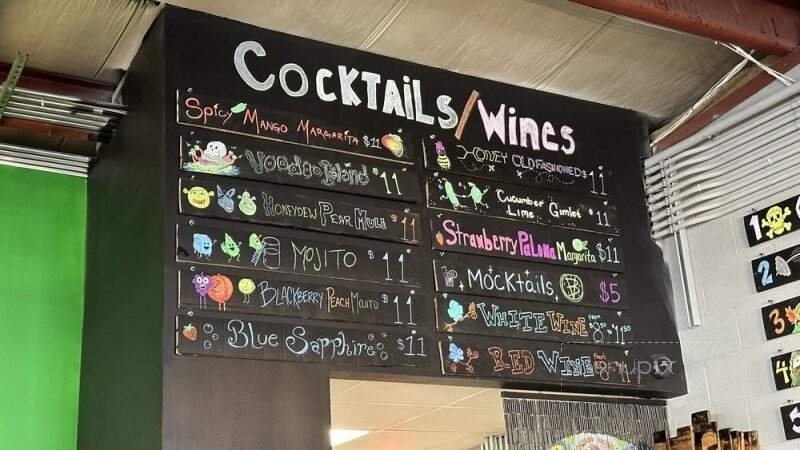 Cocktails/Wines
Spicy Mango Margarita $11
Voodoo Island $11
Honeydew Pear Mule $11
Mojito $11
Blackberry Peach Mojito $11
Blue Sapphire $11
Honey Old Fashioned $11
Cucumber
Lime Gimlet $11
Strawberry Paloma Margarita $11
Mocktails $5
White Wine
Red Wine
1
2
3
4
5